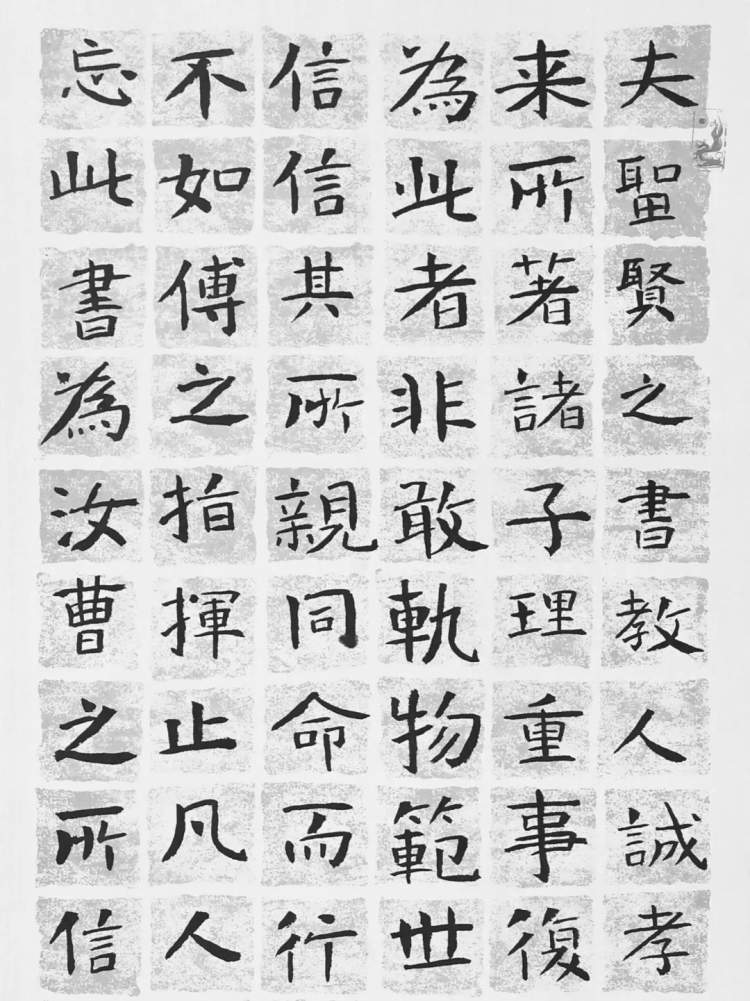 夫聖賢之書教人誠孝
来所著諸子理重事復
為此者非敢軌物範世
信信其所親同命而行
不如傅之指揮止凡人
忘此書為汝曹之所信